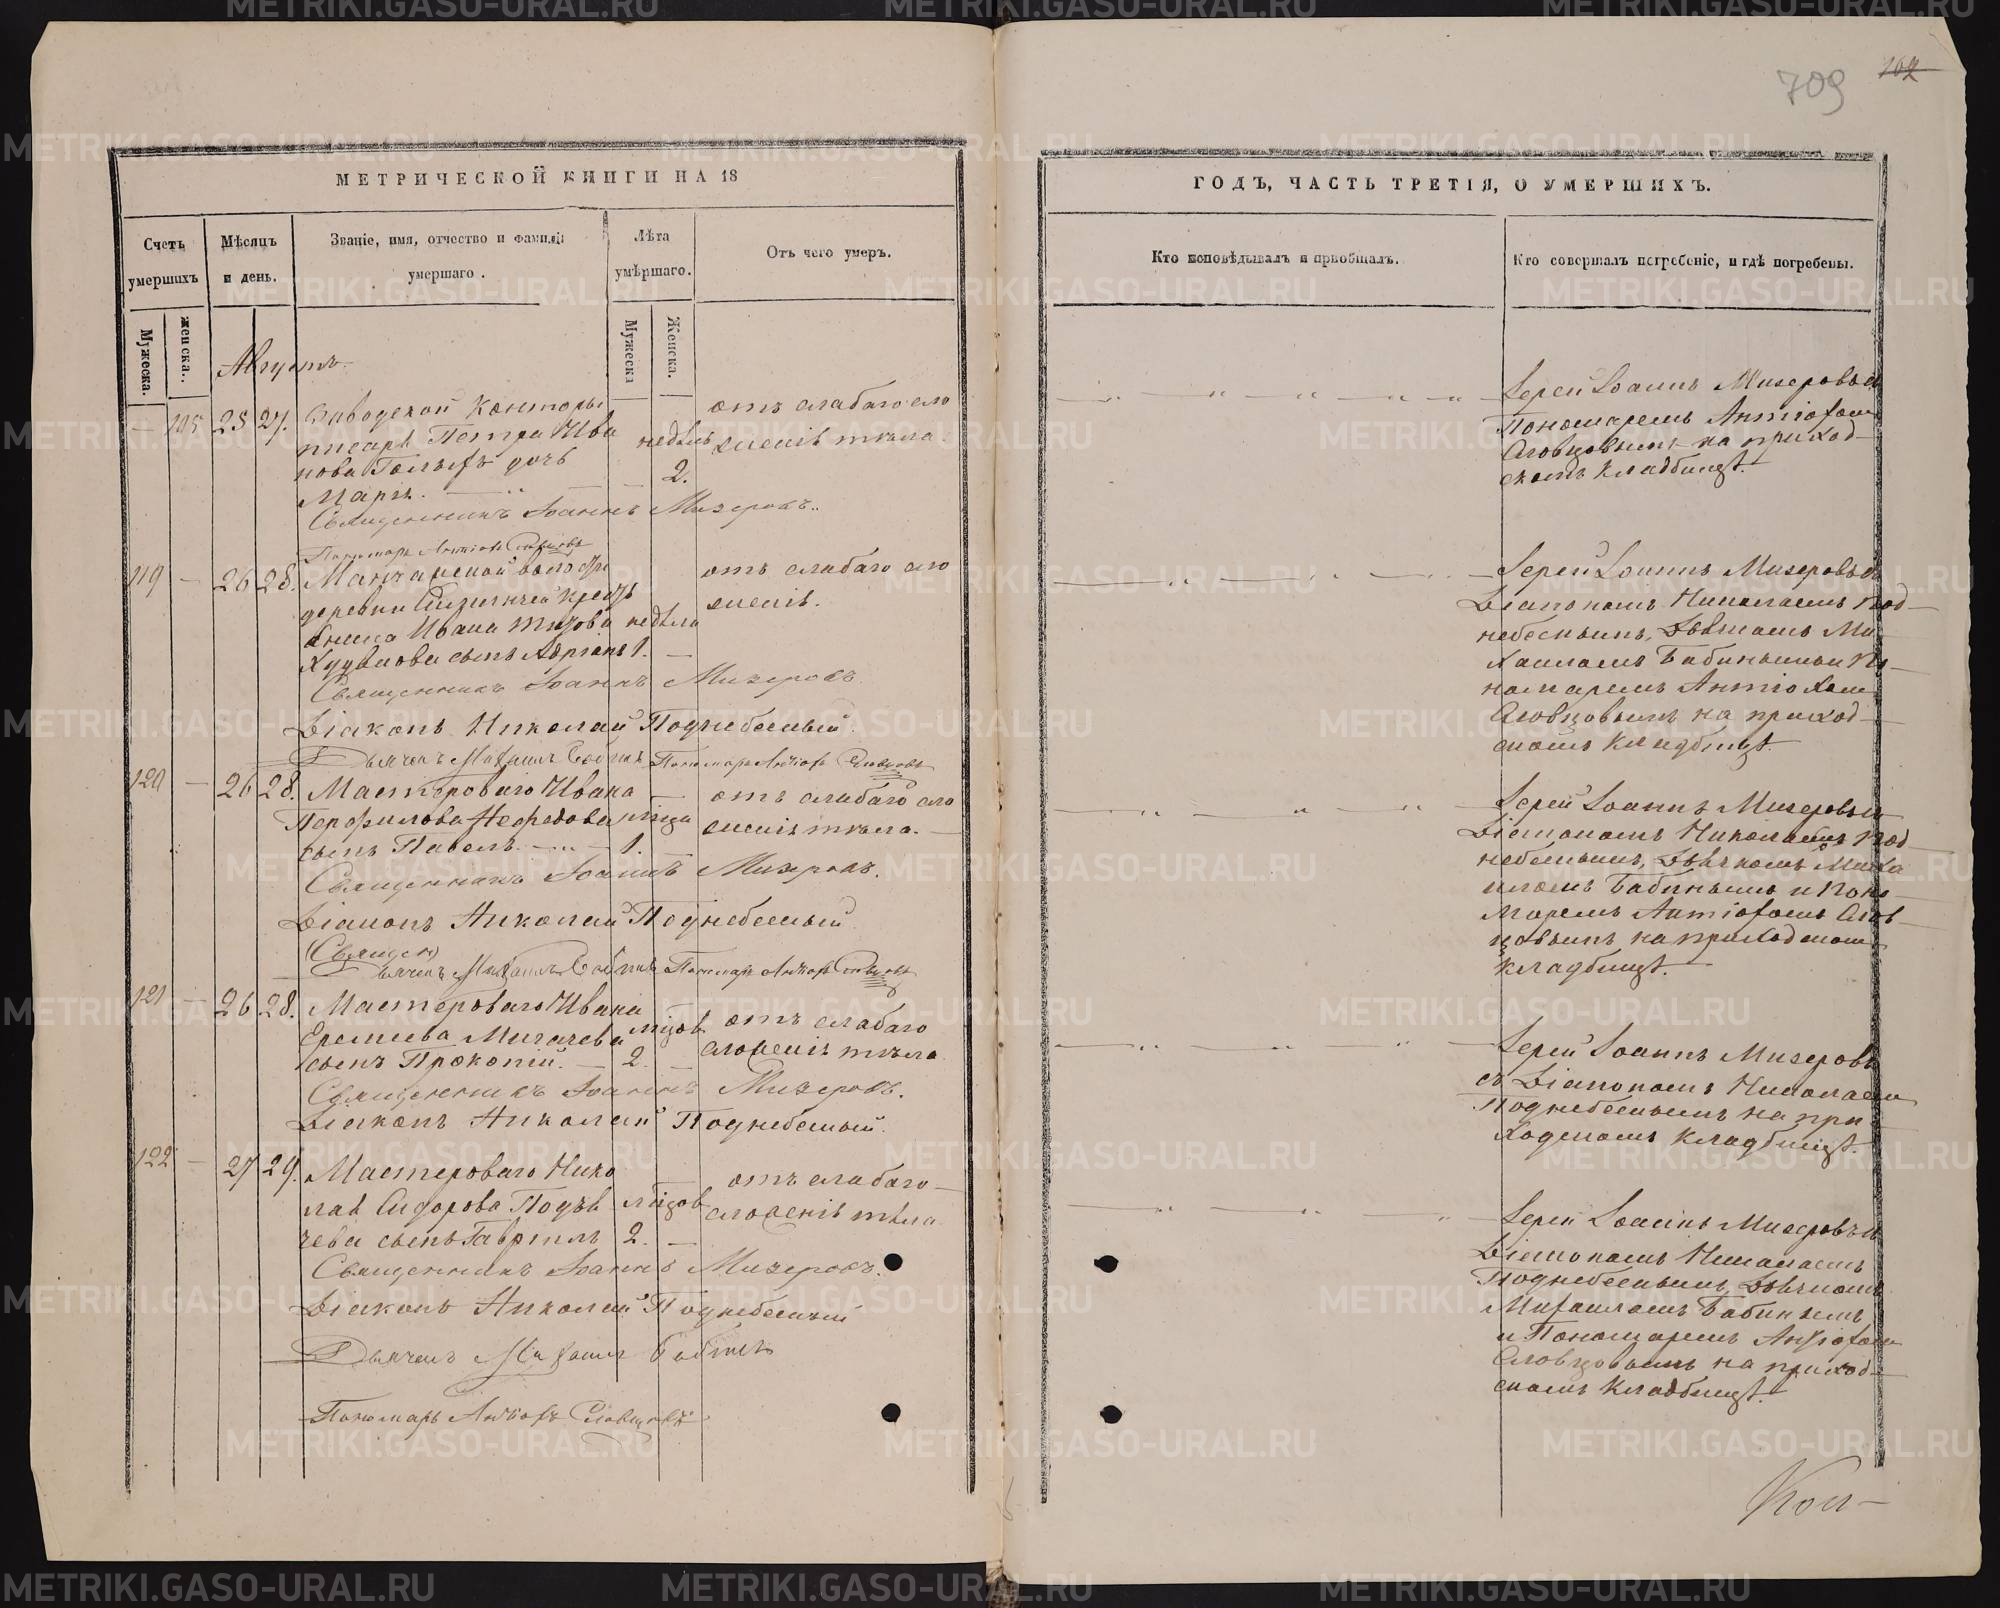 709
102
МЕТРИЧЕСКОЙ КНИГИ НА 18
Счетъ умершихъ
Мѣсяцъ и день.
Званіе, имя, отчество и фамилія умершаго.
Лѣта умѣршаго.
Отъ чего умеръ.
Мужеска.
женска.
Мужеска
Женска.
Августъ.
— 105 25 27. Заводской конторы
писаря Петра Ива
нова дочь
Марія.
недѣль
2.
отъ слабаго сло
женія тѣла.
Священникъ Іоаннъ Мизеровъ.
Пономарь Антіохъ Словцовъ
119 — 26 28.
деревни
Ивана
сынъ Адріанъ 1. —
недѣля
отъ слабаго сло
женія.
Священникъ Іоаннъ Мизеровъ
Діаконъ Николай Поднебесный
Дьячекъ Михаилъ Бабинъ Пономарь Антіохъ Словцовъ
120 — 26 28. Мастероваго Ивана
Перфилова Нефедова
сынъ Павелъ. — 1.
отъ слабаго сло
женія тѣла. —
Священникъ Іоаннъ Мизеровъ.
Діаконъ Николай Поднебесный
(Священ)
Дьячекъ Михаилъ Бабинъ Пономарь Антіохъ Словцовъ
121 — 26 28. Мастероваго Ивана
Еремѣева
сынъ Прокопій. — 2. —
отъ слабаго
сложенія тѣла
Священникъ Іоаннъ Мизеровъ.
Діаконъ Николай Поднебесный.
122 — 27 29. Мастероваго Нико
лая Сидорова
сынъ Гавріилъ 2. —
отъ слабаго
сложенія тѣла
Священникъ Іоаннъ Мизеровъ.
Діаконъ Николай Поднебесный
Дьячекъ Михаилъ Бабинъ
Пономарь Антіохъ Словцовъ
ГОДЪ, ЧАСТЬ ТРЕТІЯ, О УМЕРШИХЪ.
Кто исповѣдывалъ и пріобщалъ.
Кто совершалъ погребеніе, и гдѣ погребены.
Іерей Іоаннъ Мизеровъ съ
Пономаремъ Антіохомъ
Словцовымъ на приход-
скомъ кладбищѣ.
Іерей Іоаннъ Мизеровъ съ
Діакономъ Николаемъ Под-
небеснымъ, Дьячкомъ Ми-
хаиломъ Бабинымъ и По-
номаремъ Антіохомъ
Словцовымъ на приход-
скомъ кладбищѣ.
Іерей Іоаннъ Мизеровъ съ
Діакономъ Николаемъ Под-
небеснымъ, Дьячкомъ Миха
иломъ Бабинымъ и Поно-
маремъ Антіохомъ Слов-
цовымъ на приходскомъ
кладбищѣ.
Іерей Іоаннъ Мизеровъ
съ Діакономъ Николаемъ
Поднебеснымъ на при
ходскомъ кладбищѣ.
Іерей Іоаннъ Мизеровъ съ
Діакономъ Николаемъ
Поднебеснымъ, Дьячкомъ
Михаиломъ Бабинымъ
и Пономаремъ Антіохомъ
Словцовымъ на приход-
скомъ кладбищѣ.
METRIKI.GASO-URAL.RU